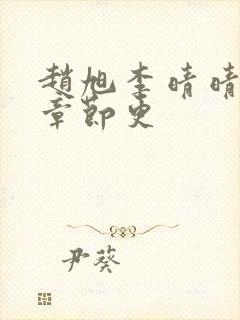 趙旭李晴晴
章節更
尹葵